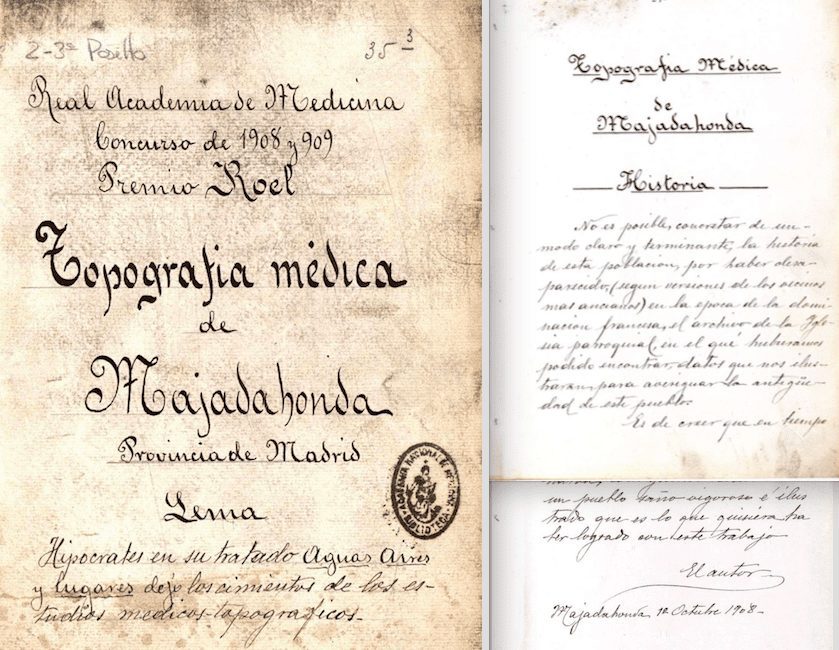 2-3ª Posetto
35 3
Real Academia de Medicina
Concurso de 1908 y 909
Premio Roel
Topografia médica
de
Majadahonda
Provincia de Madrid
Lema
Hipocrates en su tratado Aguas Aires
y lugares dejo los cimientos de los es-
tudios medicos-topograficos.
BIBLIOTECA
Topografia Médica
de
Majadahonda
Historia
No es posible, concretar de un
modo claro y terminante, la historia
de esta poblacion, por haber desa-
parecido, (segun versiones de los vecinos
mas ancianos) en la epoca de la domi-
nacion francesa, el archivo de la Igle-
sia parroquial, en el qué hubieramos
podido encontrar, datos que nos ilus-
traran, para averiguar la antigüe-
dad de este pueblo.
Es de creer que en tiempo
un pueblo sano vigoroso é ilus
trado que es lo que quisiera ha
ber logrado con este trabajo
El autor
Majadahonda 1º Octubre 1908-